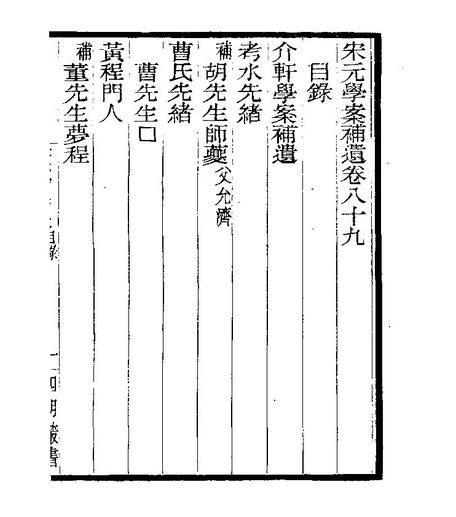 宋元學案補遺卷八十九
目錄
介軒學案補遺
考水先緒
補胡先生師夔父允濟
曹氏先緒
曹先生□
黃程門人
補董先生夢程
目錄
四明叢書